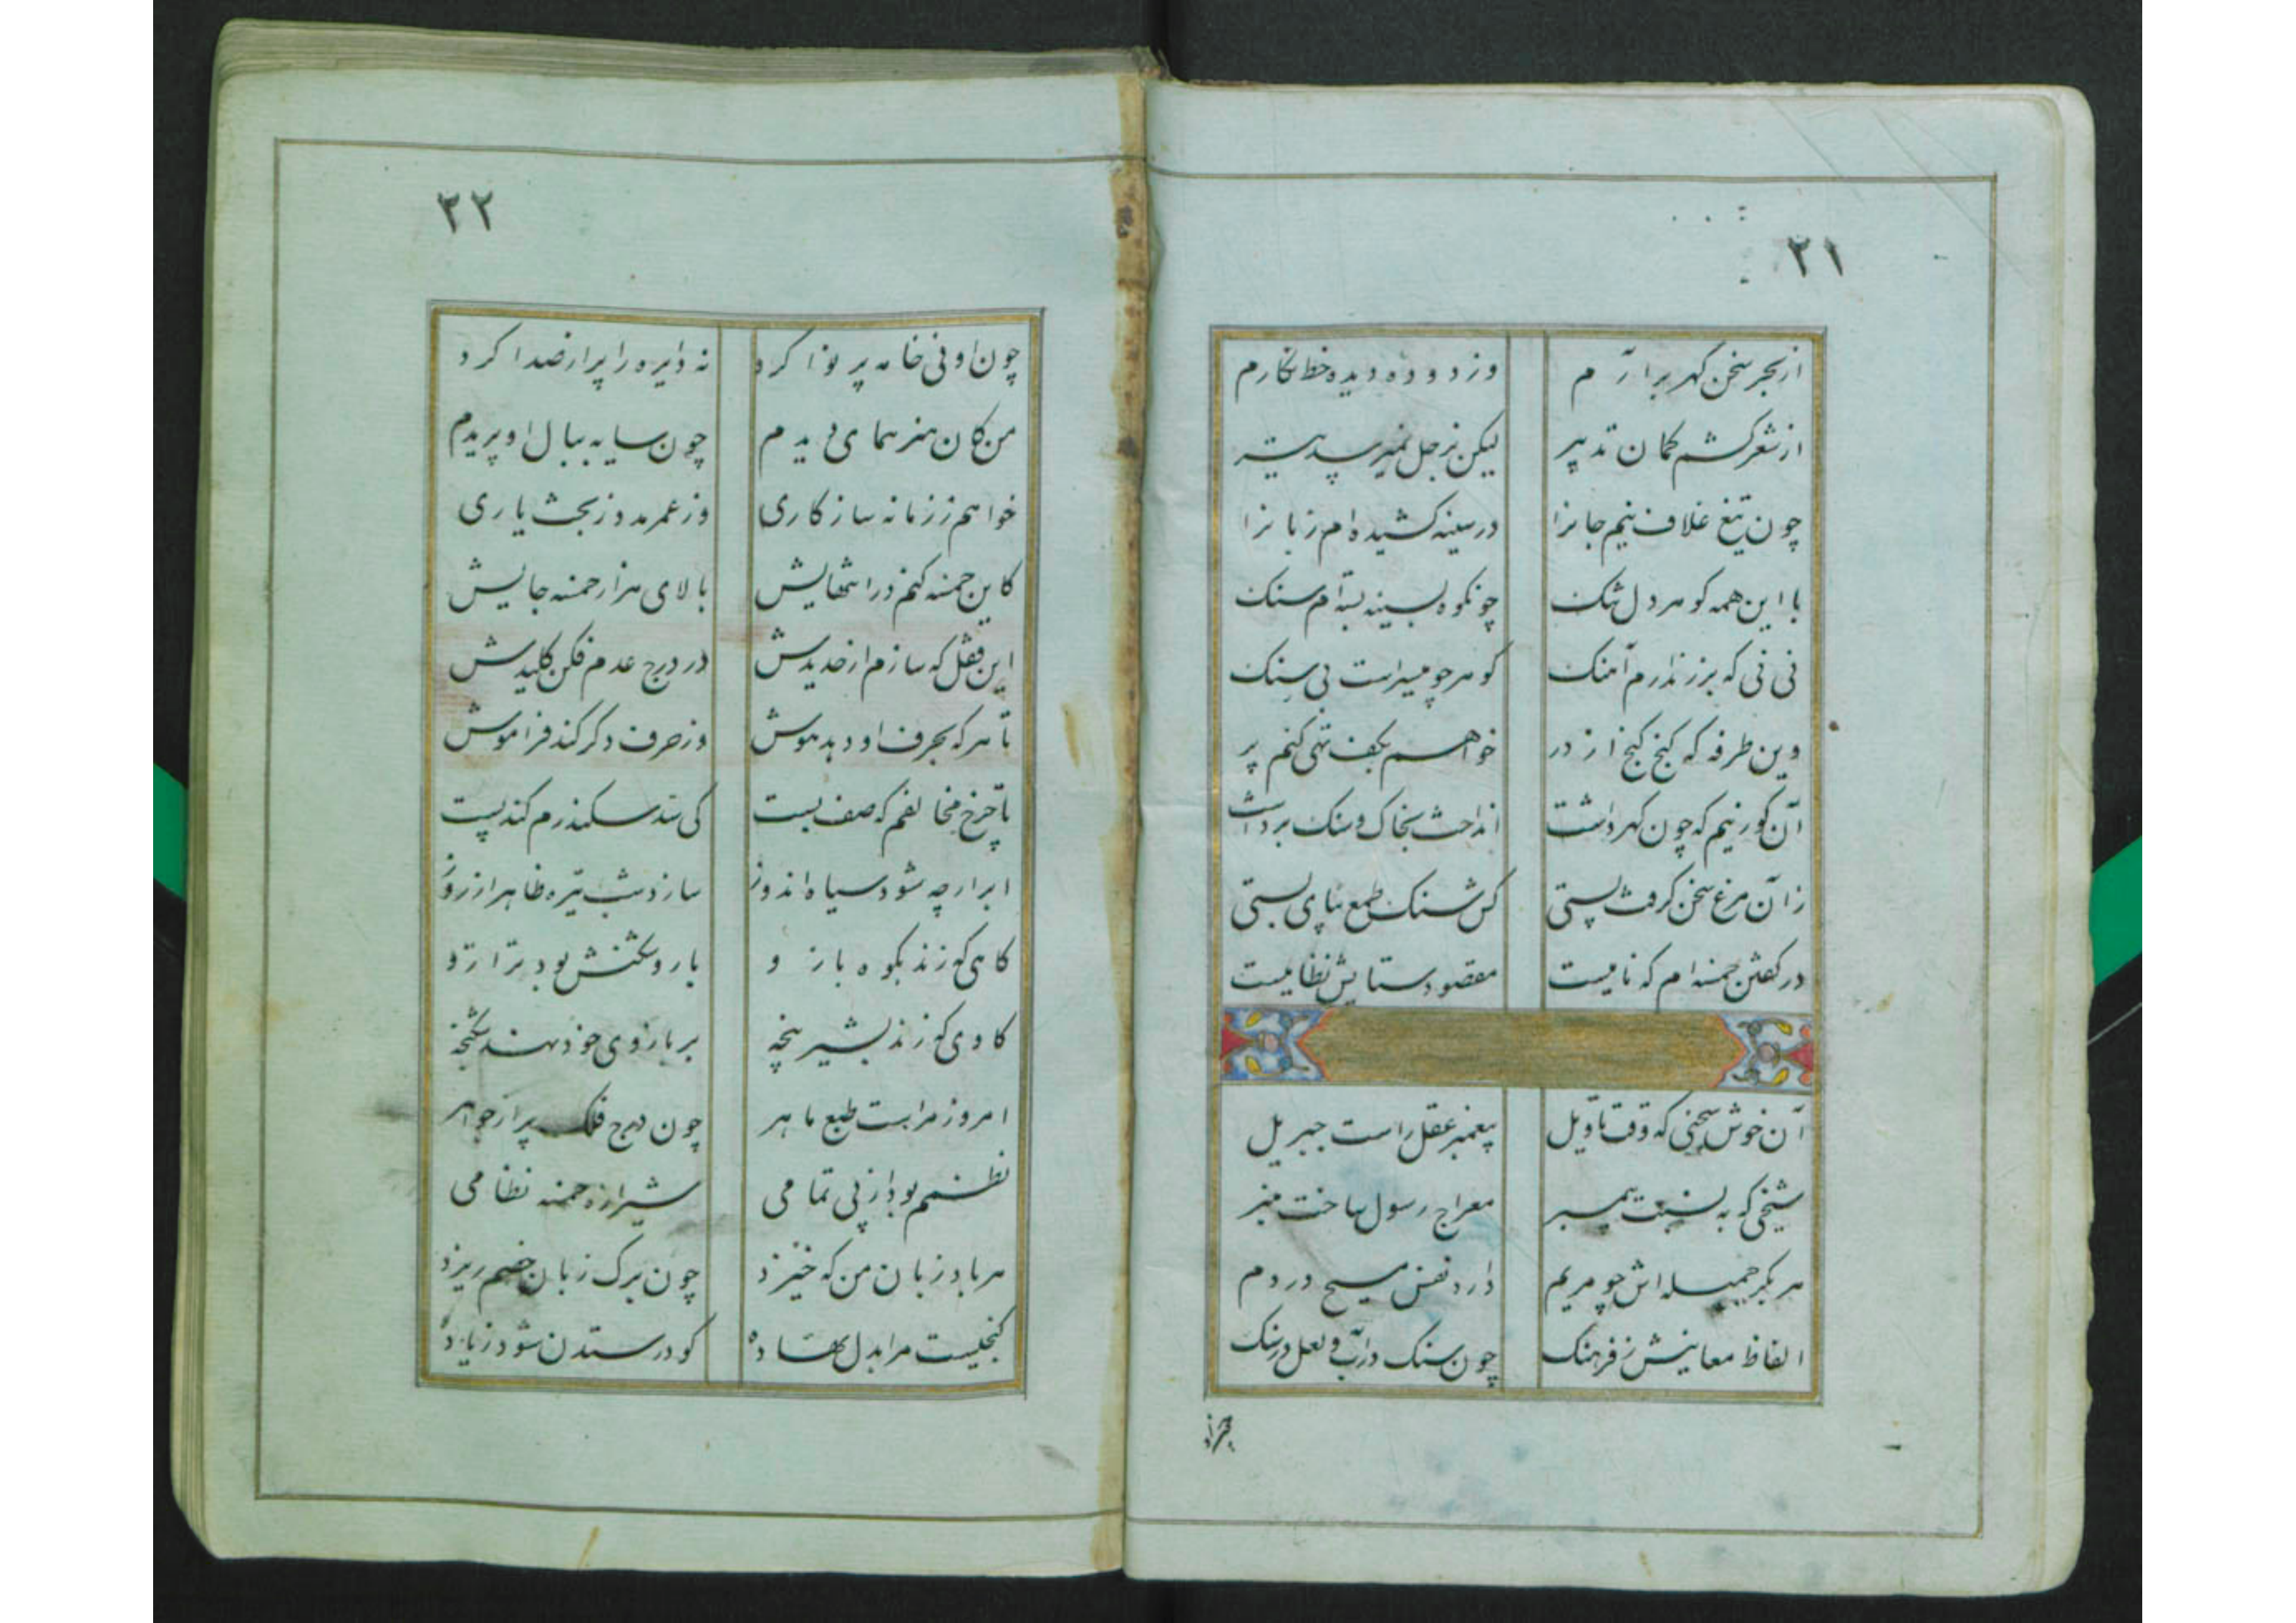 ۲۱
از بحر سخن گهر برآرم وز دوده دیده خط نگارم
از شعر کشم کمان تدبیر لیکن نزحل نمیرسد تیر
چون تیغ غلاف نیم جانرا در سینه کشیده‌ام زبانرا
با این همه کوهر دل تنک چو نکوه بسینه بسته‌ام سنک
نی نی که بزر ندارم آهنک کوهر چو میسر است بی سنک
وین طرفه که کنج کنج از در خواهم بکف تهی کنم پر
آن کور نیم که چون کهر داشت انداخت بخاک و سنک برداشت
زآن مرغ سخن کرفت پستی کش سنک طمع بپای بستی
در کفتن خمسه‌ام که نامیست مقصود ستایش نظامیست
آن خوش سخنی که وقت تاویل پیغمبر عقل راست جبریل
شیخی که به نسبت پیمبر معراج رسول ساخت منبر
هر بکر جمیله اش چو مریم دارد نفس مسیح در دم
الفاظ معانیش ز فرهنک چون سنک درآب و لعل در سنک
۲۲
چون او نی خامه پر نوا کرد نه دایره را پر از صدا کرد
من کان هنر همای دیدم چون سایه ببال او پریدم
خواهم ززمانه سازکاری وز عمر مدد ز بخت یاری
کاین خمسه کنم در انتهایش بالای هزار خمسه جایش
این قفل که سازم از حدیدش در درج عدم فکن کلیدش
تا هر که بحرف او دهد هوش وز حرف دکر کند فراموش
با چرخ مخالفم که صف بست کی سد سکندرم کند پست
ابر ارچه شود سیاه اندوز سازد شب تیره ظاهر از روز
کاهی که زند بکوه بازو بار و شکنش بود ترازو
کاوی که زند بشیر پنجه بر بازوی خود نهد شکنجه
امروز مراست طبع ماهر چون درج فلک پر از جواهر
نظمم بود از پی تمامی شیرازه خمسه نظامی
هر باد زبان من که خیزد چون برک زبان خصم ریزد
کنجیست مرا بدل نهاده کو در ستدن شود زیاده